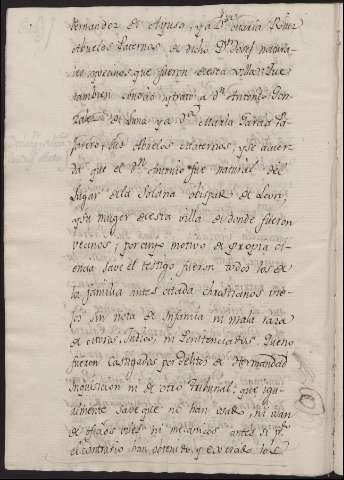 Fernandez de Ayuso, y a Dª Maria Ruiz
Abuelos Paternos de dicho Dn Josef natura-
les y vecinos que fueron de esta villa: Que
tambien conocio y trato a Dn Antonio Gon-
zalez de Luna y a Dª Maria Garcia
sus Abuelos maternos; y se acuer-
da que el Dn Antonio fue natural del
Lugar de la Solana obispado de Leon;
y su muger de esta villa de donde fueron
vecinos; por cuyo motivo de propia ci-
encia save el testigo fueron todos los de
la familia antes citada christianos vie-
jos sin nota de infamia ni mala raza
de Moros Judios, ni Penitenciados, Que no
fueron castigados por delitos de Hermandad
Inquisicion ni de otro Tribunal; que igu-
almente save que no han usado, ni usan
de oficios viles ni mecanicos antes si pr
el contrario han obtenido y exercido los